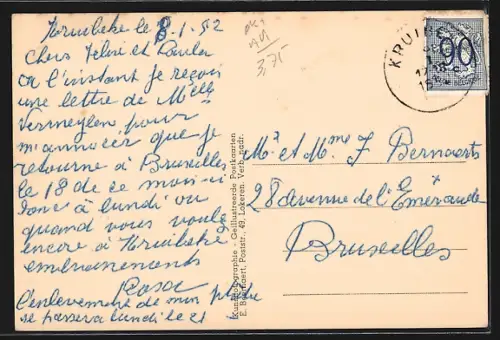 Kruibeke le 8.1.52
Chers Félix et Paula
a l'instant je reçois
une lettre de Melle
Vermeylen pour
m'annoncer que je
retourne à Bruxelles
le 18 de ce mois-ci
donc à lundi ou
quand vous voulez
encore à Kruibeke
embrassements
Rosa
l'enlevement de mon
se passera lundi le 21
3,75
Kunstfotographie - Geïllustreerde Postkaarten
E. Beernaert, Poststr., 49, Lokeren. Verb. nadr.
KRUIB
90
BELGIE
Mr et Mme F Bernaerts
28 avenue de l'Emeraude
Bruxelles